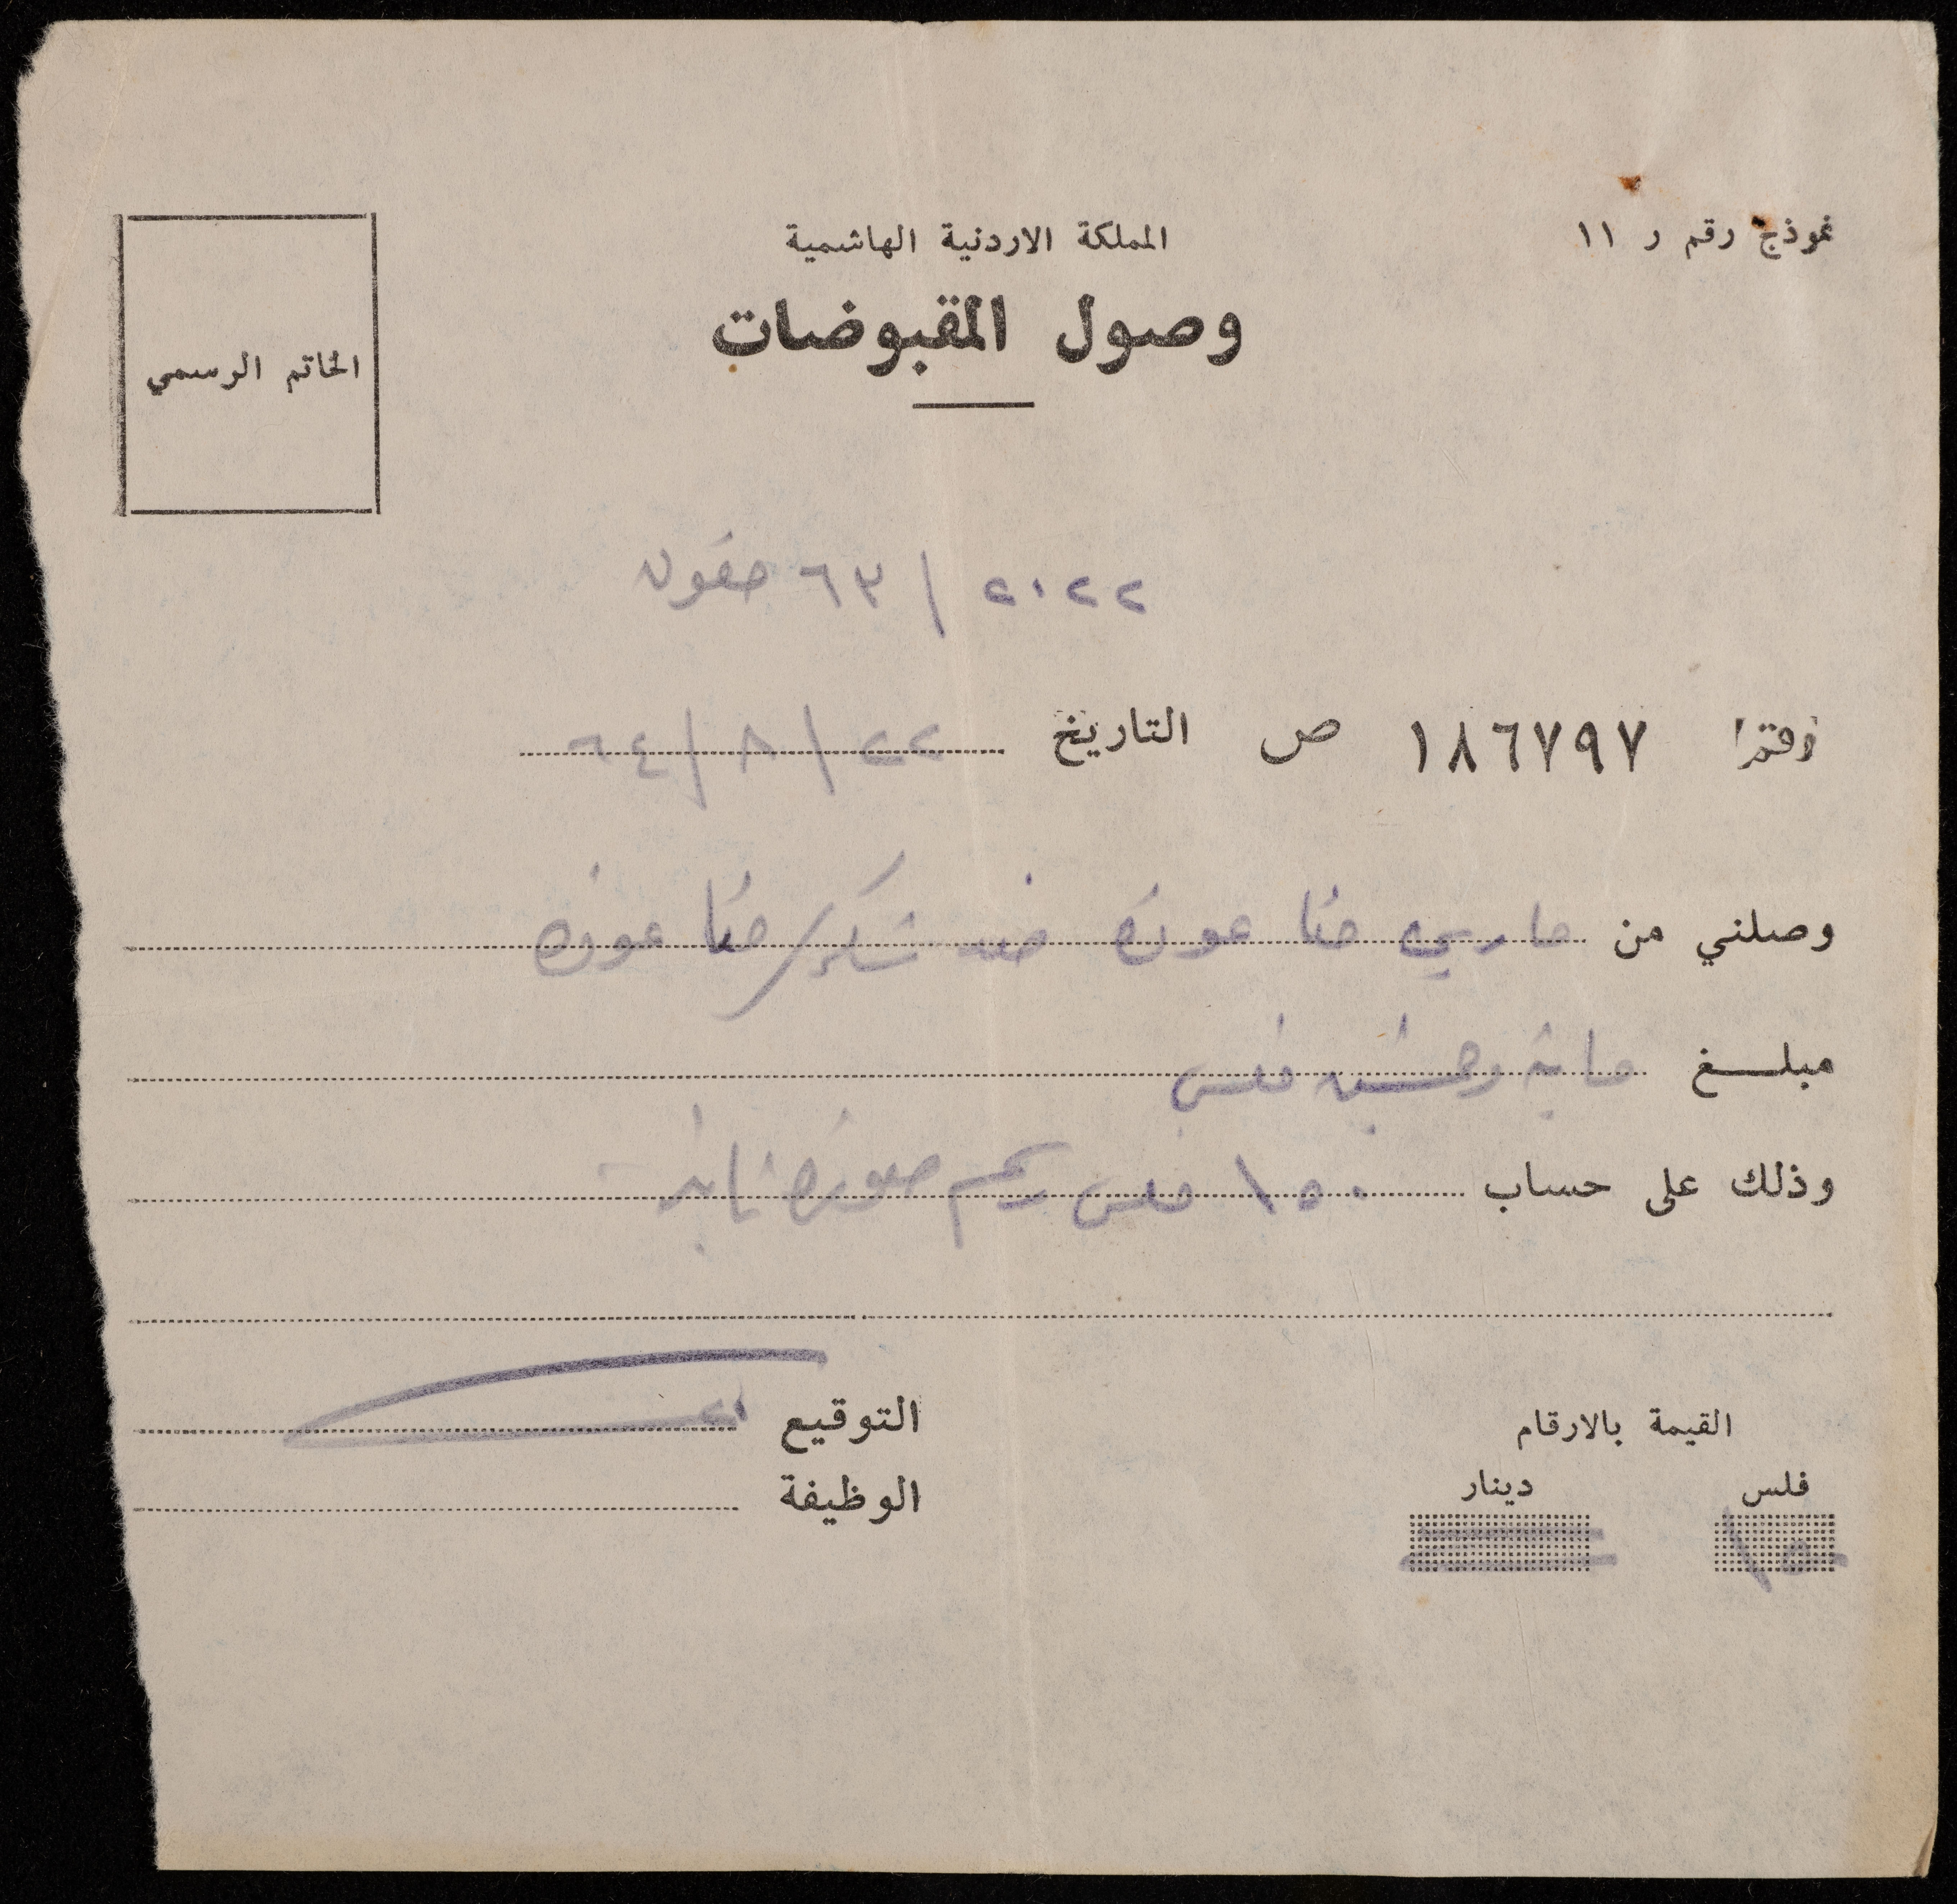 نموذج رقم ر ١١
المملكة الاردنية الهاشمية
وصول المقبوضات
الخاتم الرسمي
٢٠٢٢ / ٦٣ حقوق
١٨٦٧٩٧ ص التاريخ ٢٢ / ٨ / ٦٤
وصلني من ماري حنا عودة ضد شكري حنا عودة
مبلغ ماية وخمسين فلس
وذلك على حساب ١٥٠ فلس رسم صورة ثانية
القيمة بالارقام
فلس دينار
١٥٠
التوقيع
الوظيفة